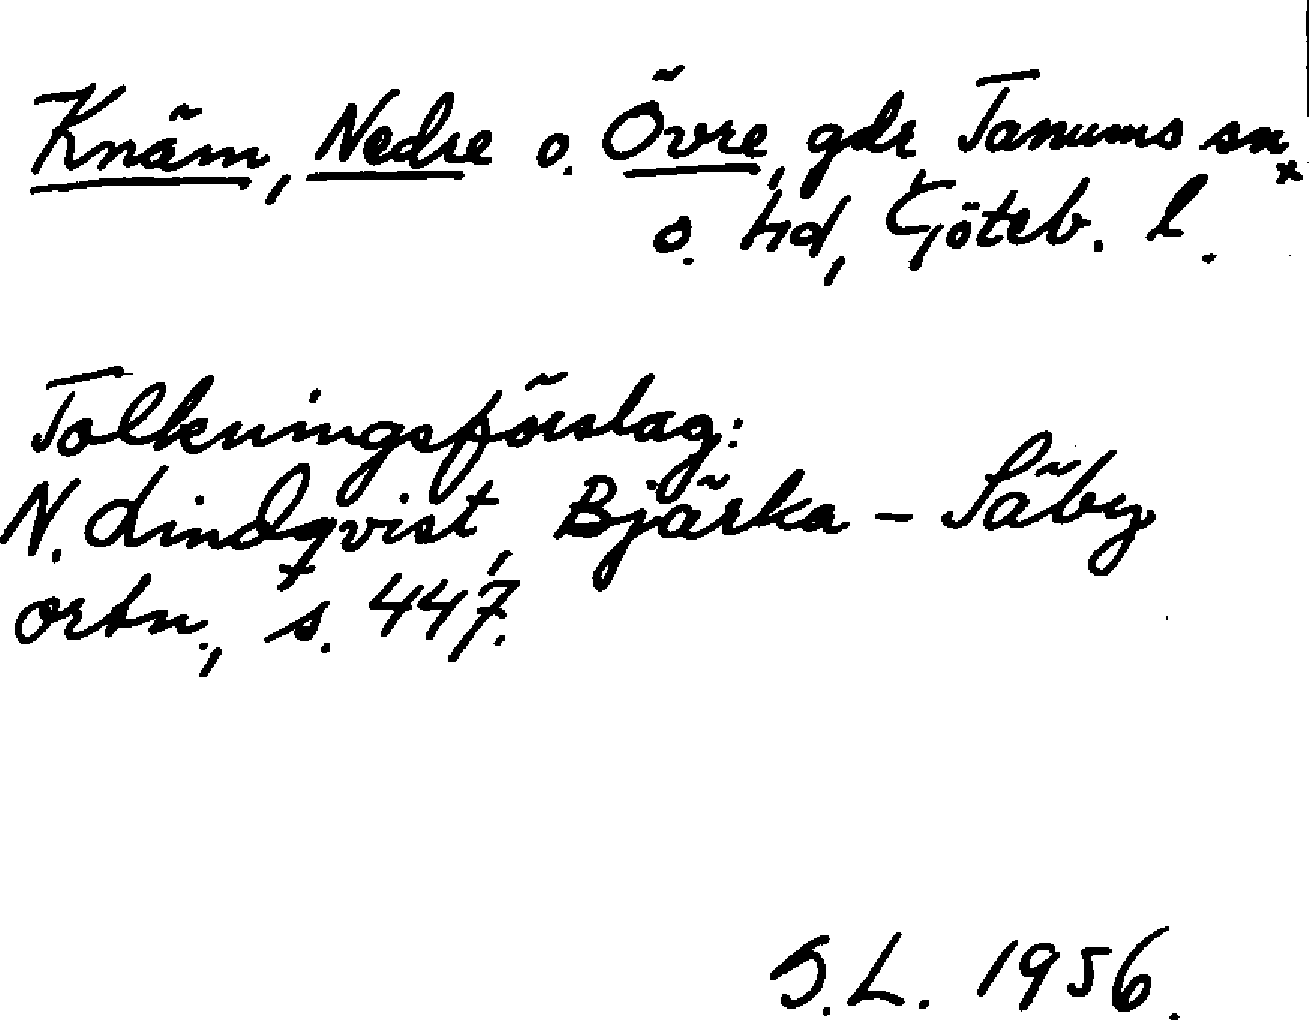 Knäm, Nedre o. Övre, gdr, Tanums sn
o. hd, Göteb. l.
Tolkningsförslag:
N. Lindqvist, Bjärka - Säby
ortn., s. 447.
S.L. 1956.